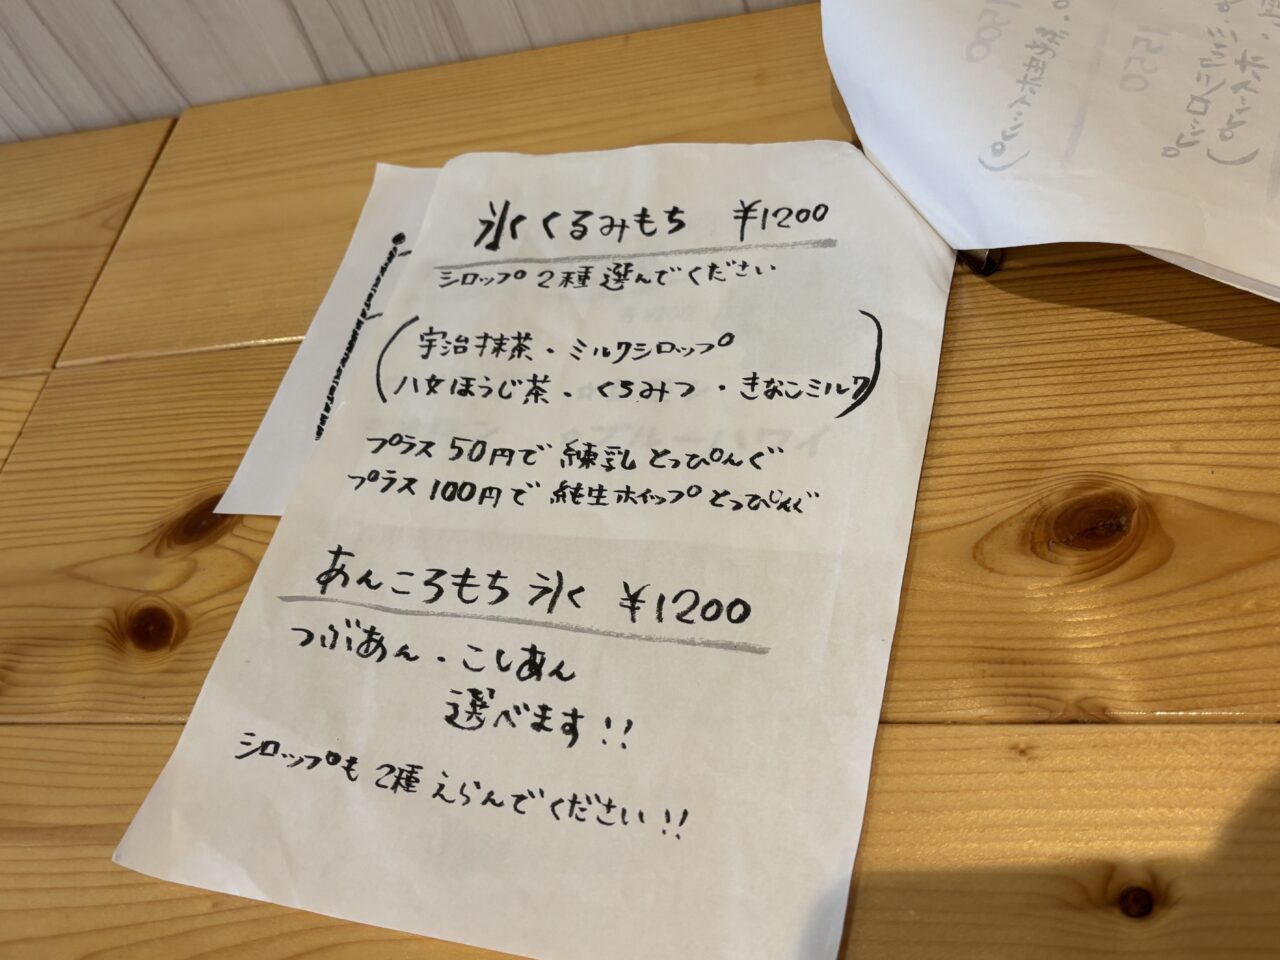 氷くるみもち ¥1200
シロップ2種選んでください
(宇治抹茶・ミルクシロップ
八女ほうじ茶・くろみつ・きなこミルク)
プラス50円で練乳とっぴんぐ
プラス100円で純生ホイップとっぴんぐ
あんころもち氷 ¥1200
つぶあん・こしあん
選べます!!
シロップも2種えらんでください!!